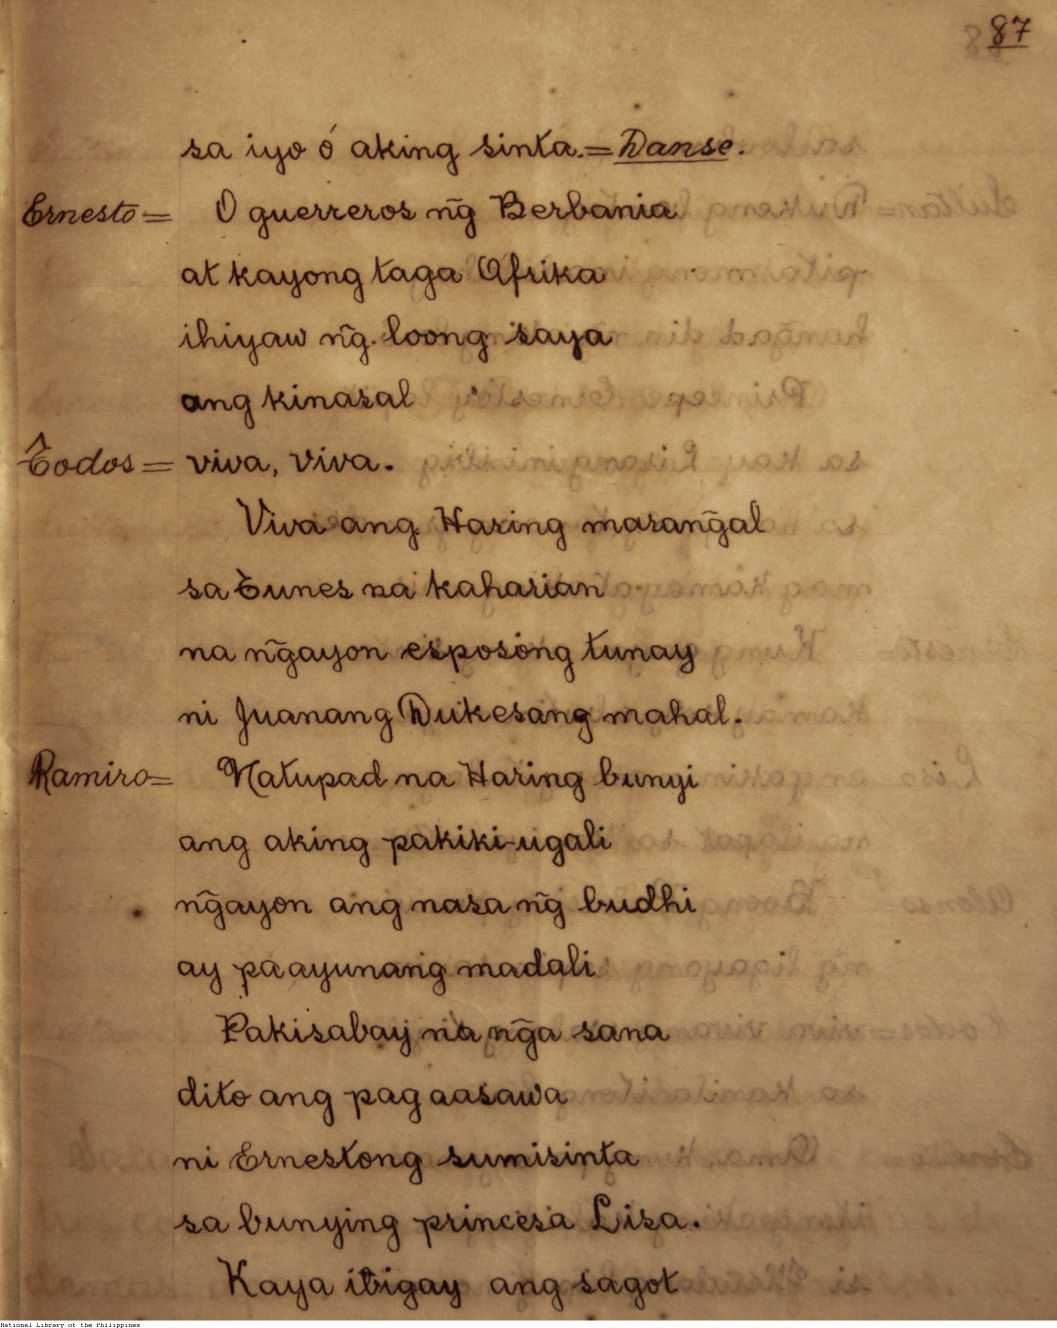 87
sa iyo ó aking sinta.= Danse.
Ernesto= O guerreros ng̃ Berbania
at kayong taga Afrika
ihiyaw ng̃ loong saya
ang kinasal
Todos= viva, viva.
Viva ang Haring marang̃al
sa Tunes na kaharian
na ng̃ayon esposong tunay
ni Juanang Dukesang mahal.
Ramiro= Natupad na Haring bunyi
ang aking pakiki-ugali
ng̃ayon ang nasa ng̃ budhi
ay pa ayunang madali
Pakisabay na ng̃a sana
dito ang pag aasawa
ni Ernestong sumisinta
sa bunying princesa Lisa.
Kaya ibigay ang sagot
National Library of the Philippines